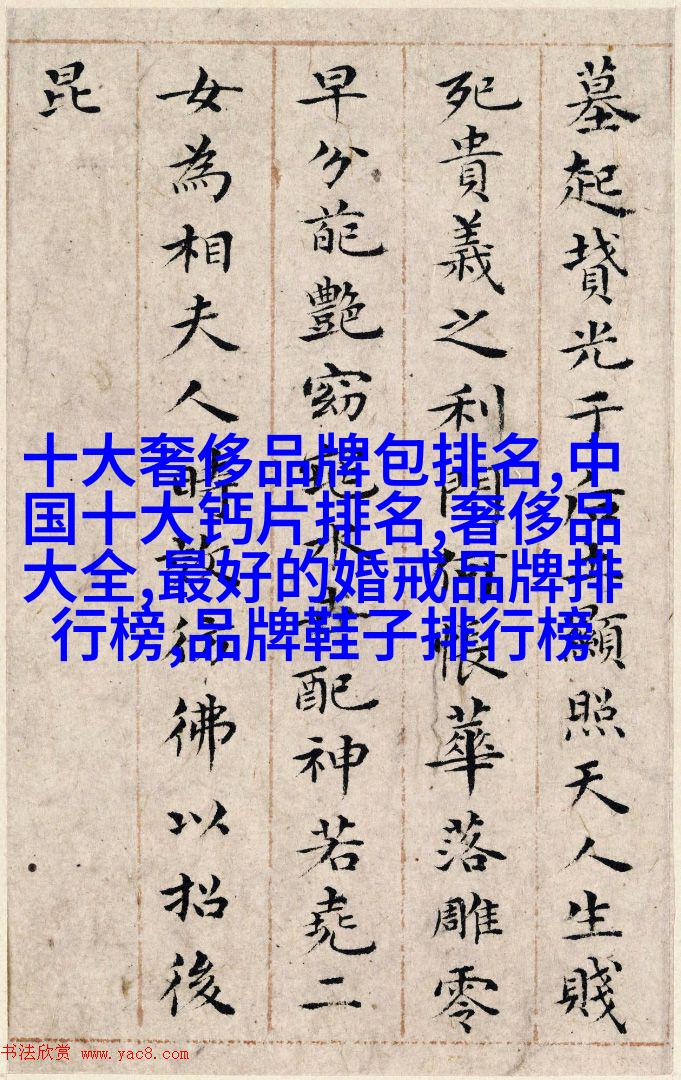 墓起墳光于后土顯照天人生賤
死貴義之利門何悵華落雕零
早分葩艷窈窕永世配神若堯二
女為相夫人時效彷彿以招後
昆
十大奢侈品牌包排名,中
国十大钙片排名,奢侈品
大全,最好的婚戒品牌排
行榜,品牌鞋子排行榜
书法欣赏 www.yac8.com